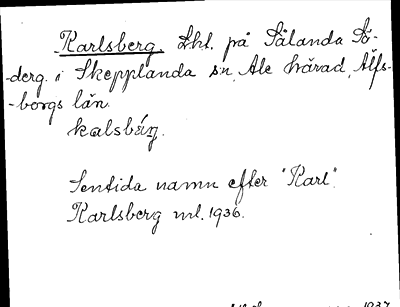 Karlsberg. Lht. på Sålanda Sö-
derg. i Skepplanda sn, Ale härad, Älfs-
-borgs län.
Sentida namn efter "Karl".
Karlsberg ml. 1936.
1937